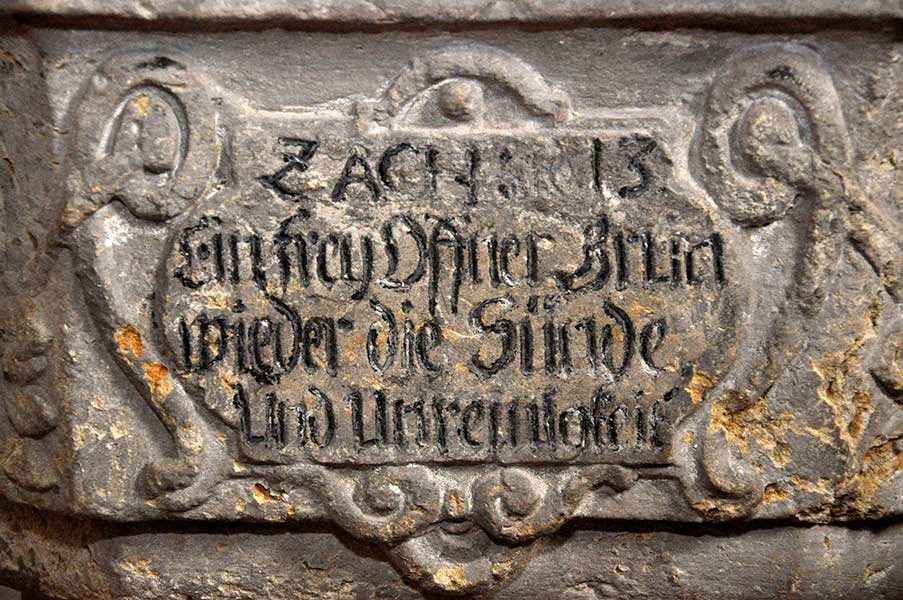 ZACH: 13
Ein frey Offner Brun
wieder die Sünde
Und Unreinigkeit